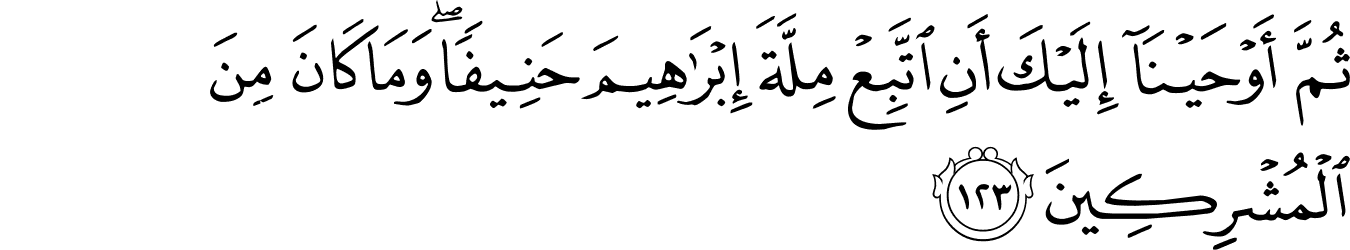 ثُمَّ أَوْحَيْنَآ إِلَيْكَ أَنِ ٱتَّبِعْ مِلَّةَ إِبْرَٰهِيمَ حَنِيفًا ۖ وَمَا كَانَ مِنَ
ٱلْمُشْرِكِينَ ١٢٣